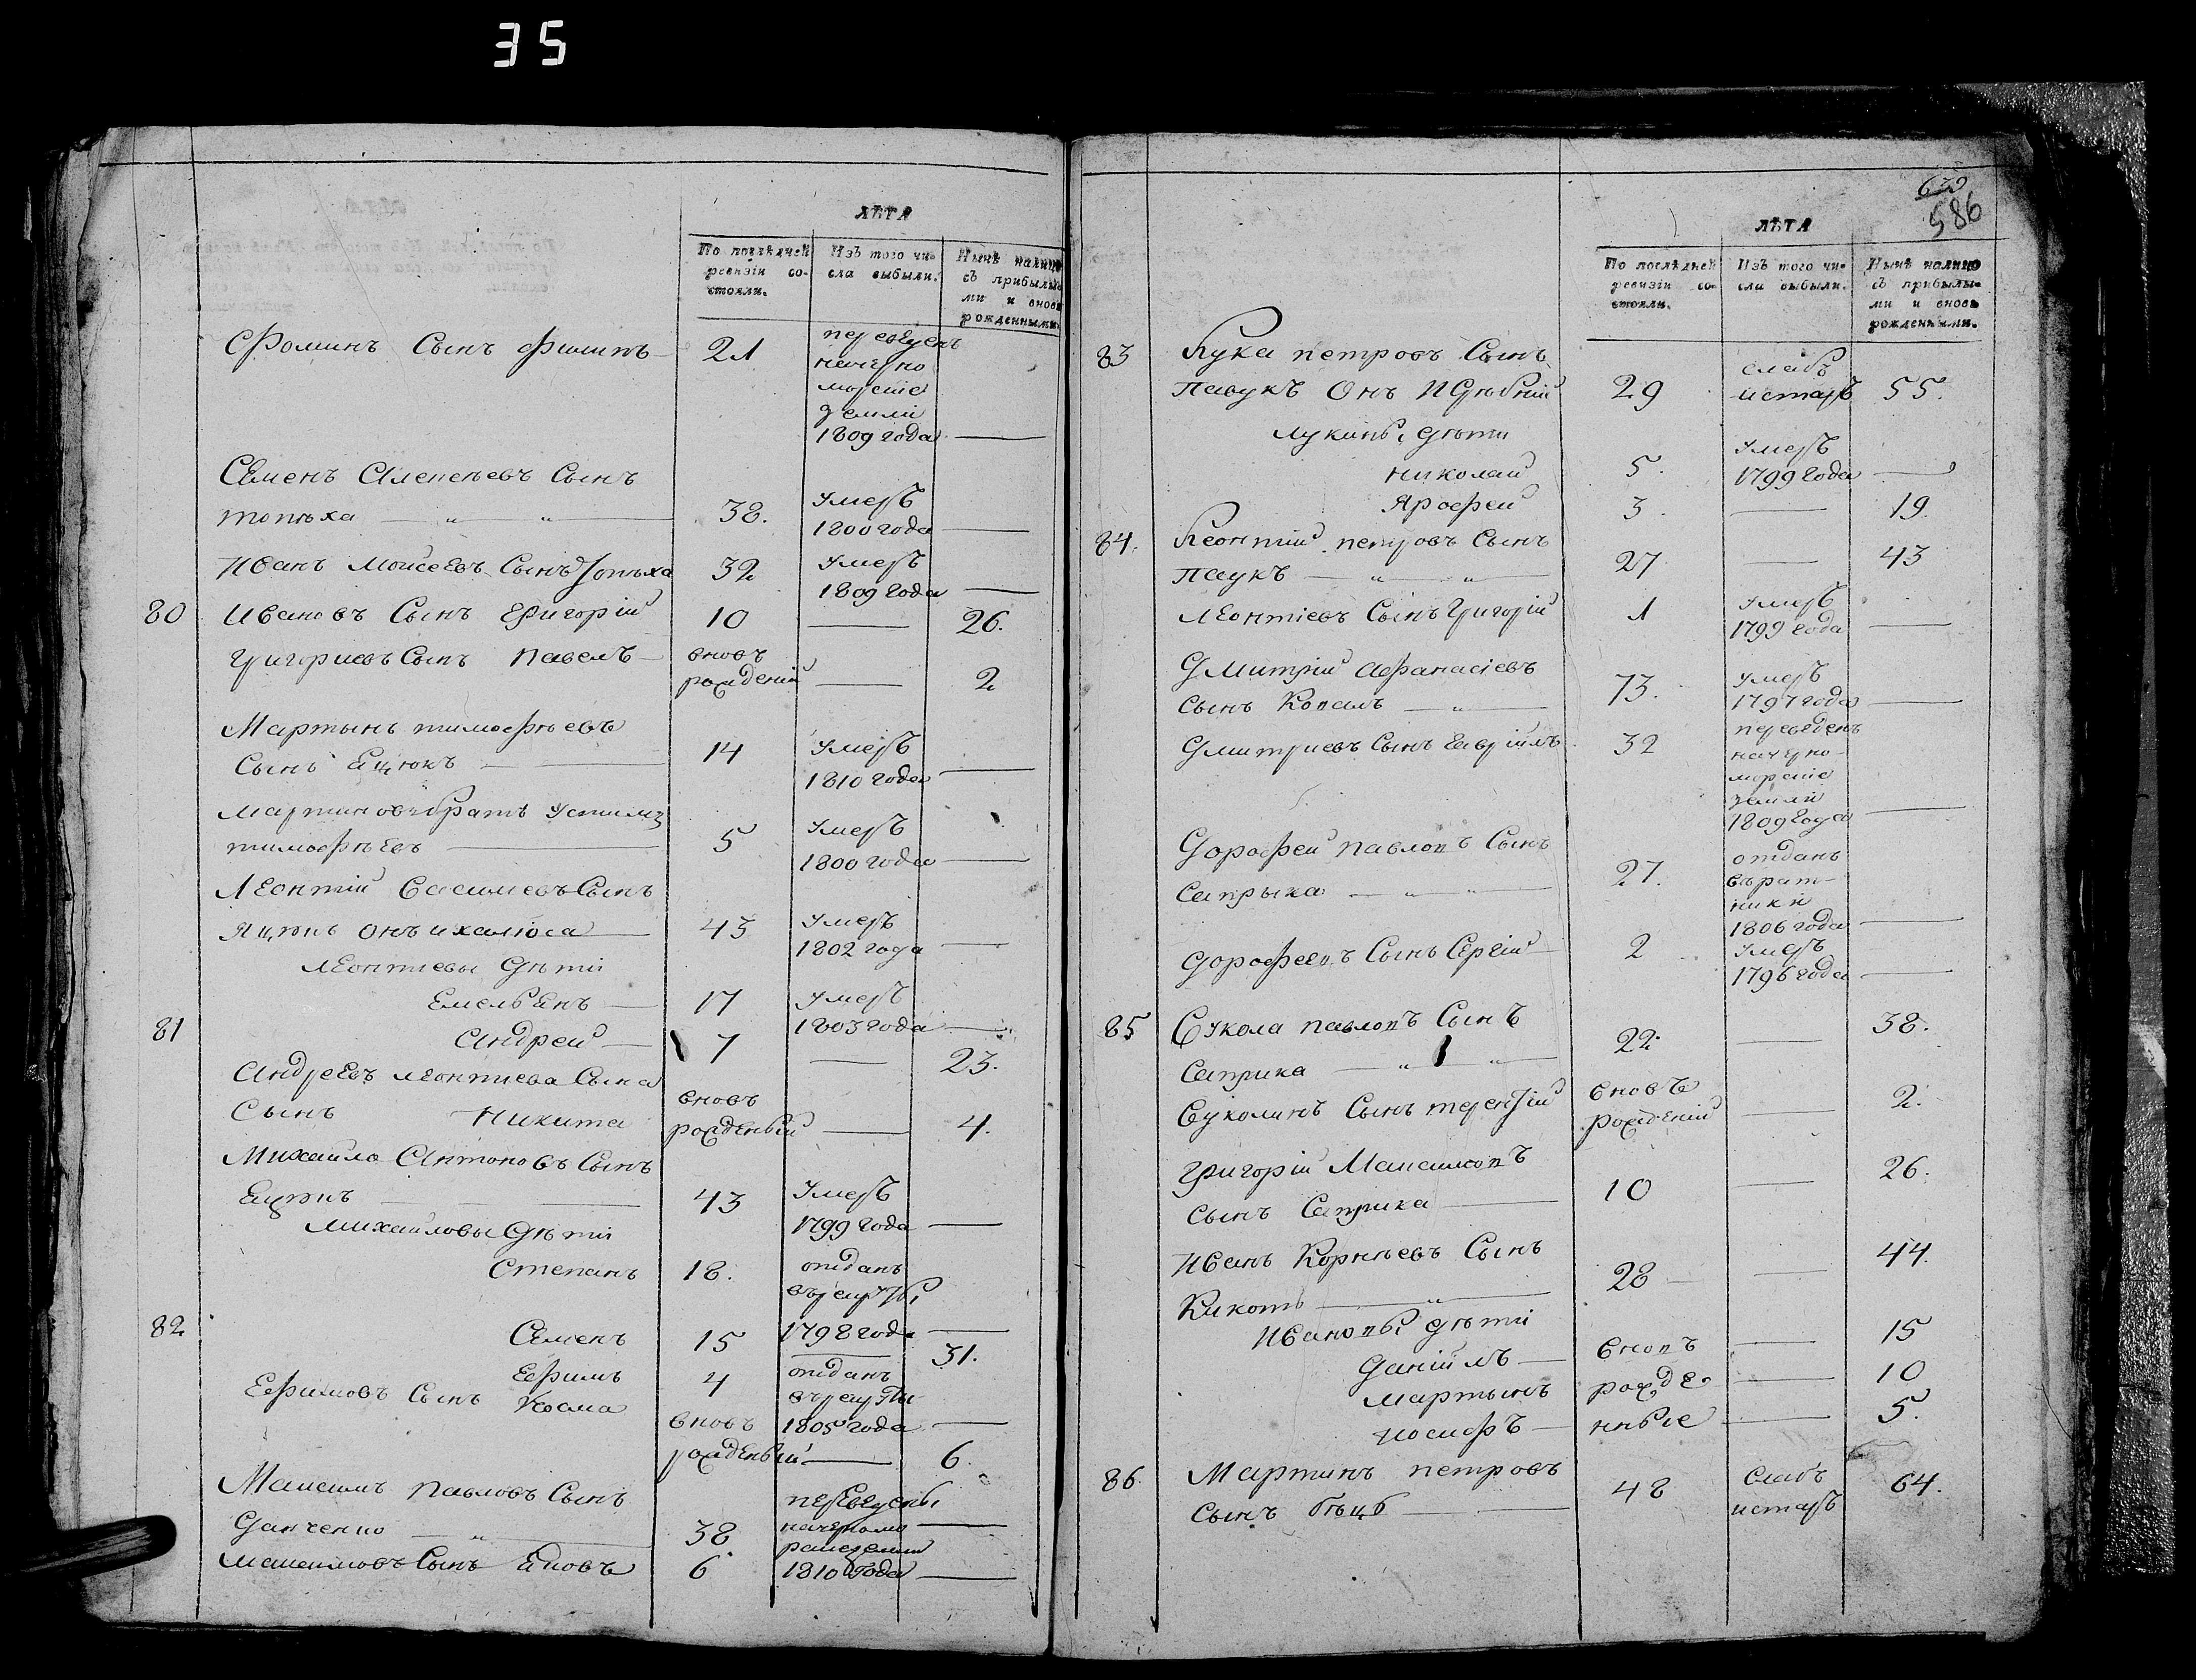 35
ЛѢТА
По послѣдней ревизіи состояли.
Изъ того числа выбыли.
Нынѣ налицо съ прибылыми и вновь рожденными.
Фоминъ Сынъ Филипъ 21 переведенъ
на черно
морские
земли
1809 года —
Семенъ Алексѣевъ Сынъ
топѣха — „ „ — 38. умеръ
1800 года —
Иванъ Моисеевъ Сынъ топѣха 32 умеръ
1809 года —
80 Ивановъ Сынъ Григорій 10 — 26.
Григориевъ Сынъ Павелъ — вновь
рожденій — 2
Мартынъ тимофѣевъ
Сынъ Яцюкъ — 14 умеръ
1810 года —
мартиновъ братъ Устимъ
тимофѣевъ — 5 умеръ
1800 года —
Леонтій Василиевъ Сынъ
Яцюкъ онъ и 43 умеръ
1802 года —
Леонтиевы дѣти
Емельянъ — 17 умеръ
1803 года —
81 Андрей — 7 — 23.
Андреевъ леонтиева Сына
Сынъ Никита вновь
рожденый — 4.
Михайло Антоновъ Сынъ
Яцюкъ — 43 умеръ
1799 года —
Михайловы дѣти
Степанъ 18. отданъ
въ рекруты
1798 года —
82 Семенъ 15 — 31.
Ефимъ 4 отданъ
въ рекруты
1805 года —
Ефимовъ Сынъ Козма вновь
рожденый — 6.
Максимъ Павловъ Сынъ
Ганченко — „ — 38 переведены
на черномо —
рские земли
Максимовъ Сынъ Яковъ 6 1810 года —
630
586
ЛѢТА
По послѣдней ревизіи состояли.
Изъ того числа выбыли.
Нынѣ налицо съ прибылыми и вновь рожденными.
83 Лука петровъ Сынъ
Павукъ Онъ И 29 слабъ
и старъ 55.
Лукины дѣти
николай 5. умеръ
1799 года —
Ярофей 3. — 19.
84. Леонтий петровъ Сынъ
Паукъ — „ „ — 27 — 43
Леонтіевъ Сынъ Григорій 1 умеръ
1799 года —
Дмитрій Афанасіевъ
Сынъ Коваль — „ — 73. умеръ
1797 года —
Дмитриевъ Сынъ Гаврійлъ 32 переведенъ
на черно-
морские
земли
1809 года —
Дорофей Павловъ Сынъ
Саприка — „ „ — 27. отданъ
въ рат-
ники
1806 года —
Дорофеевъ Сынъ Сергій — 2 умеръ
1796 года —
85 Вукола павловъ Сынъ
Саприка — „ „ — 22. — 38.
Вуколинъ Сынъ терентій вновь
рожденій — 2.
Григорій Максимовъ
Сынъ Саприка — 10 — 26.
Иванъ Корнѣевъ Сынъ
Кикоть — „ — 28 — 44.
Ивановы дѣти
Данійлъ — вновь — 15
Мартынъ рожде — 10
иосифъ — нные — 5.
86. Мартинъ петровъ
Сынъ — 48 слабъ
и старъ 64.